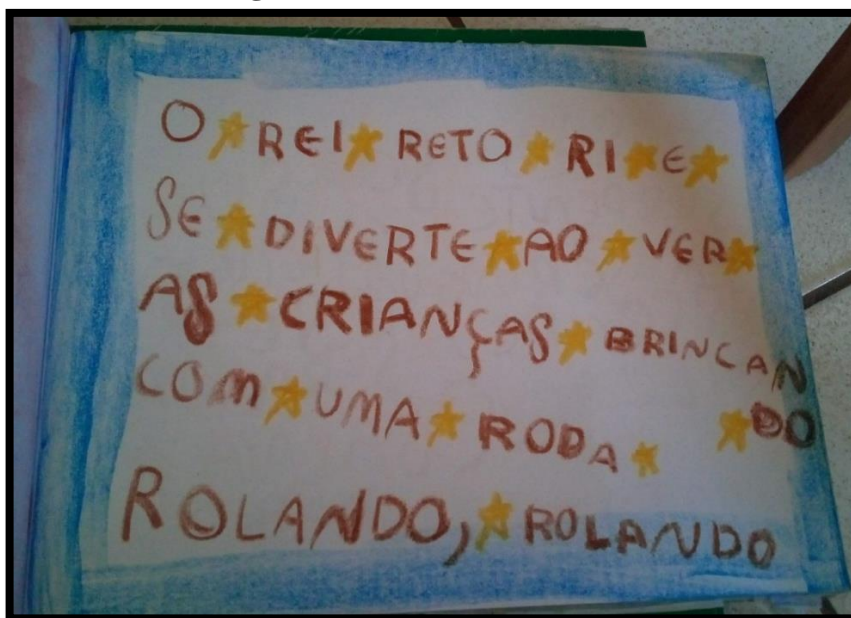 O REI RETO RI E
SE DIVERTE AO VER
AS CRIANÇAS BRINCAN
DO
COM UMA RODA
ROLANDO, ROLANDO